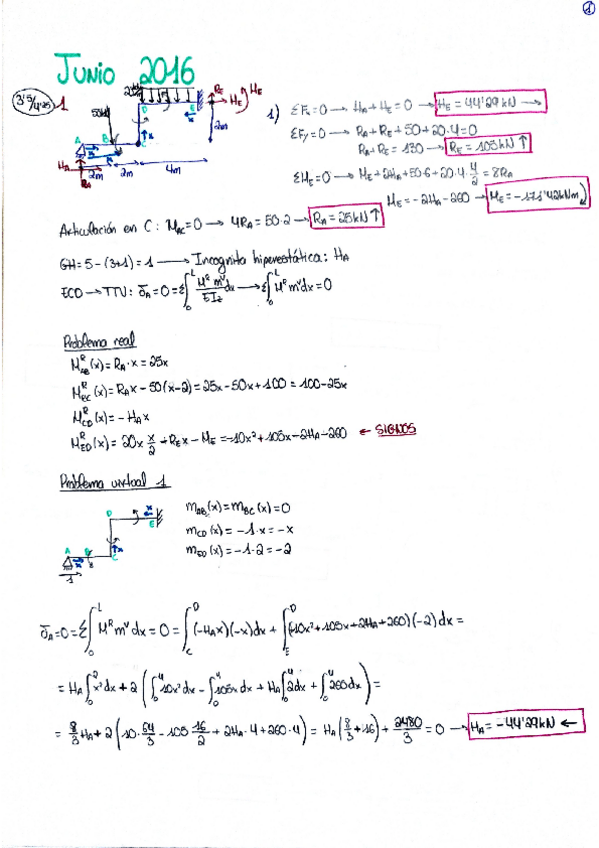 1
JUNIO 2016
3'5/4'25 1
50kN
A
B
C
D
E
R_E
H_E
M_E
H_A
R_A
2m
2m
4m
2m
1) ΣFx=0 → H_A+H_E=0 → H_E=44'29kN →
ΣFy=0 → R_A+R_E+50+20·4=0
R_A+R_E=130 → R_E=105kN ↑
ΣM_E=0 → M_E+2H_A+50·6+20·4·4/2=8R_A
M_E=-2H_A-260 → M_E=-171'42kNm
Articulación en C: M_AC=0 → 4R_A=50·2 → R_A=25kN ↑
GH=5-(3+1)=1 → Incognita hiperestática: H_A
ECD → TTV: δ_A=0=Σ∫₀ᴸ M^R m^V/EI_z dx → Σ∫₀ᴸ M^R m^V dx=0
Problema real
M^R_AB(x)=R_A·x=25x
M^R_BC(x)=R_A x-50(x-2)=25x-50x+100=100-25x
M^R_CD(x)=-H_A x
M^R_ED(x)=20x x/2+R_E x-M_E=-10x²+105x-2H_A-260 ← SIGNOS
Problema virtual 1
D
E
A
B
C
1
m_AB(x)=m_BC(x)=0
m_CD(x)=-1·x=-x
m_ED(x)=-1·2=-2
δ_A=0=Σ∫₀ᴸ M^R m^V dx=0=∫_C^D(-H_A x)(-x)dx+∫_E^D(-10x²+105x+2H_A+260)(-2)dx=
=H_A∫₀²x²dx+2(∫₀⁴10x²dx-∫₀⁴105x dx+H_A∫₀⁴2dx+∫₀⁴260dx)=
=8/3 H_A+2(10·64/3-105·16/2+2H_A·4+260·4)=H_A(8/3+16)+2480/3=0 → H_A=-44'29kN ←